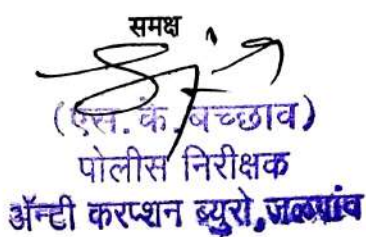 समक्ष
(एस. के. बच्छाव)
पोलीस निरीक्षक
ॲन्टी करप्शन ब्युरो, जळगांव